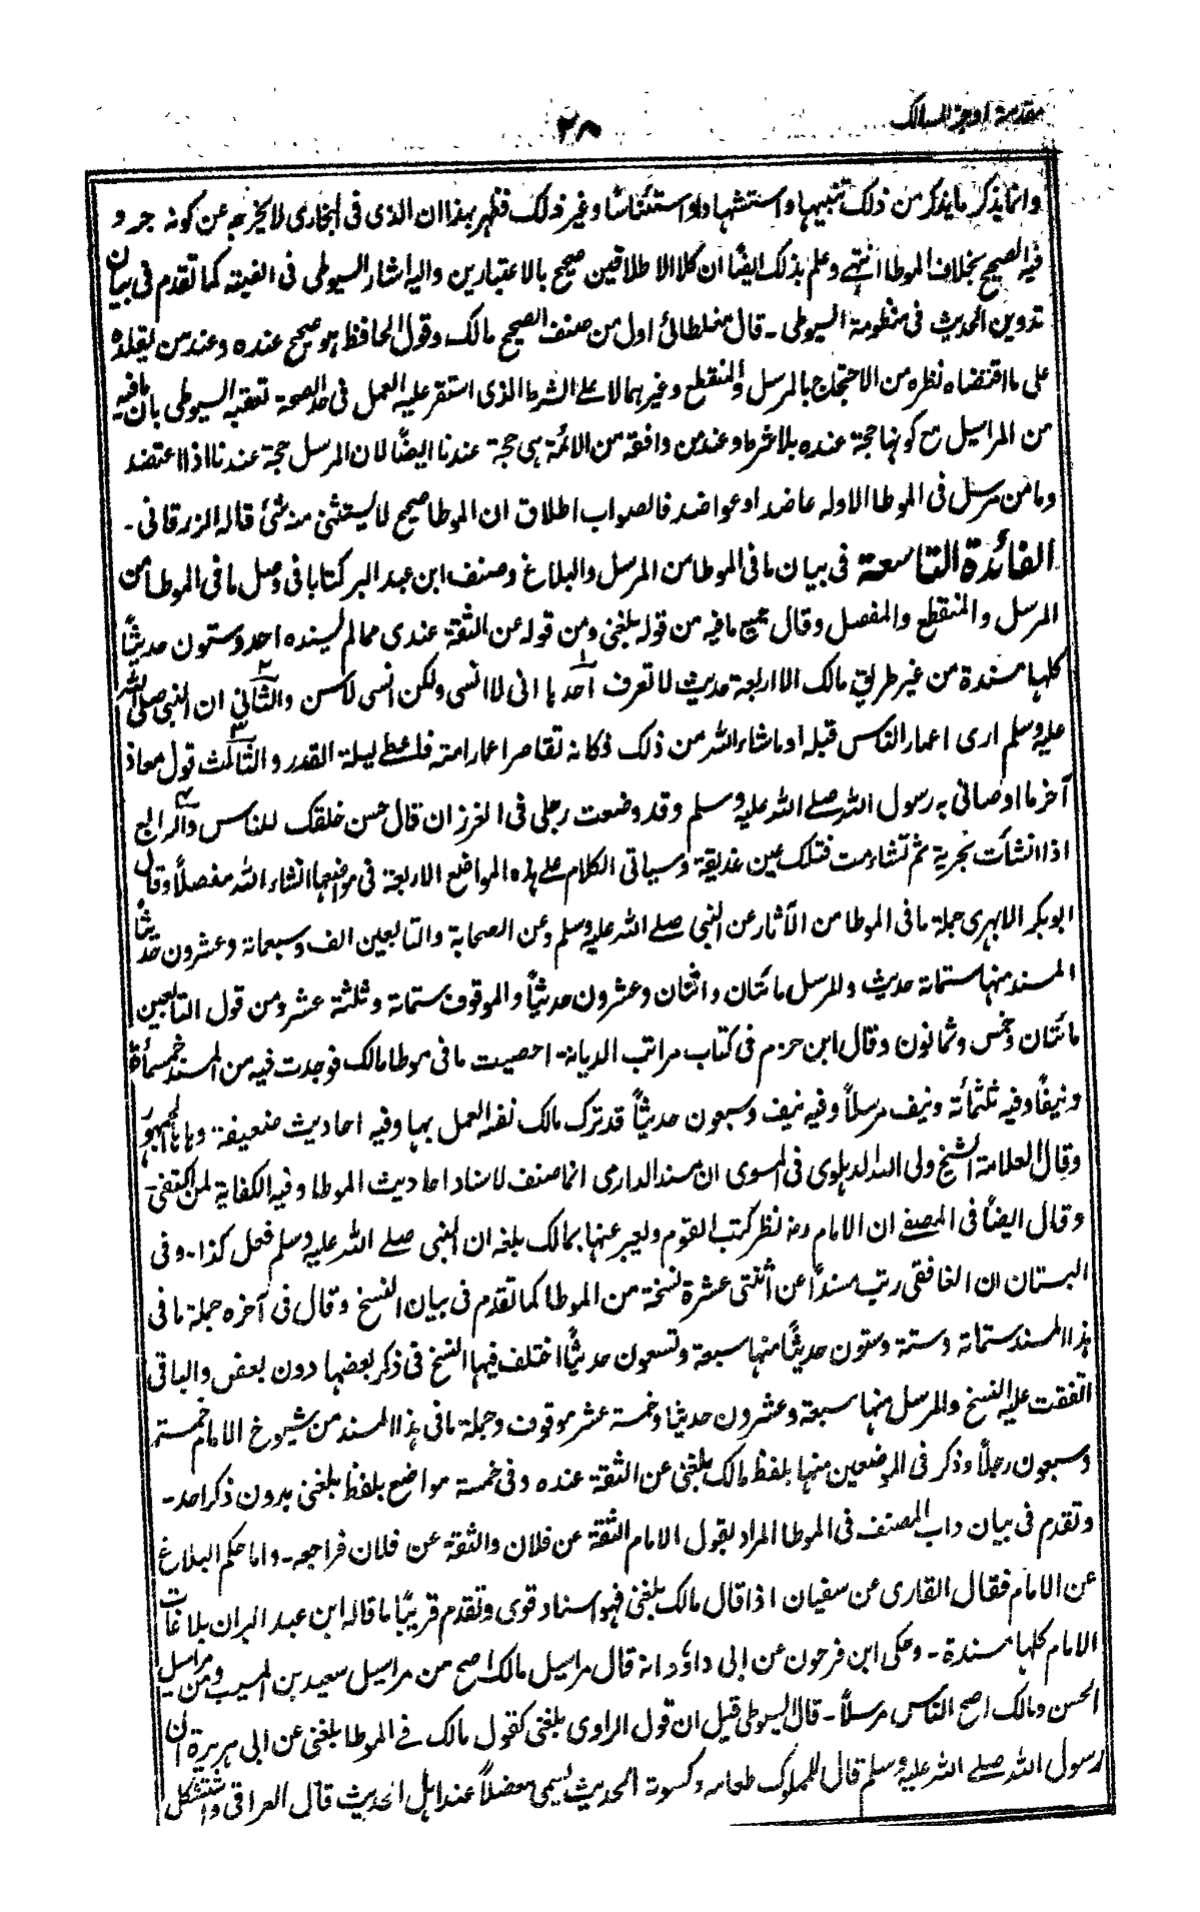 مقدمة اوجز المسالك
٢٨
وانما يذكر ما يذكر من ذلك تنبيها واستشهادا واستئناسا وغير ذلك فظهر بهذا ان الذى فى البخارى لا يخرجه عن كونه جرد
فيه الصحيح بخلاف الموطا انتهى وعلم بذلك ايضًا ان كلا الاطلاقين صحيح بالاعتبارين واليه اشار السيوطى فى الفيته كما تقدم فى بيان
تدوين الحديث فى منظومة السيوطى - قال مغلطائى اول من صنف الصحيح مالك وقول الحافظ هو صحيح عنده وعند من يقلده
على ما اقتضاه نظره من الاحتجاج بالمرسل والمنقطع وغيرهما لا على الشرط الذى استقر عليه العمل فى حد الصحة تعقبه السيوطى بان ما فيه
من المراسيل مع كونها حجة عنده بلا شرط وعند من وافقه من الائمة هى حجة عندنا ايضًا لان المرسل حجة عندنا اذا اعتضد
وما من مرسل فى الموطا الا وله عاضد او عواضد فالصواب اطلاق ان الموطا صحيح لا يستثنى منه شئ قاله الزرقانى -
الفائدة التاسعة فى بيان ما فى الموطا من المرسل والبلاغ وصنف ابن عبد البر كتابا فى وصل ما فى الموطا من
المرسل والمنقطع والمفصل وقال جميع ما فيه من قوله بلغنى ومن قوله عن الثقة عندى مما لم يسنده احد وستون حديثًا
كلها مسندة من غير طريق مالك الا اربعة حديث لا تعرف احدها انى لا انسى ولكن انسى لاسن والثانى ان النبى صلى الله
عليه وسلم ارى اعمار الناس قبله او ما شاء الله من ذلك فكانه تقاصر اعمار امته فاعطى ليلة القدر والثالث قول معاذ
آخر ما اوصانى به رسول الله صلى الله عليه وسلم وقد وضعت رجلى فى الغرز ان قال حسن خلقك للناس والرابع
اذا انشأت بحرية ثم تشاءمت فتلك عين غديقة وسياتى الكلام على هذه المواضع الاربعة فى مواضعها انشاء الله مفصلًا وقال
ابوبكر الابهرى جملة ما فى الموطا من الآثار عن النبى صلى الله عليه وسلم وعن الصحابة والتابعين الف وسبعمائة وعشرون حديثًا
المسند منها ستمائة حديث والمرسل مائتان واثنان وعشرون حديثًا والموقوف ستمائة وثلثة عشر ومن قول التابعين
مائتان وخمس وثمانون وقال ابن حزم فى كتاب مراتب الديانة احصيت ما فى موطا مالك فوجدت فيه من المسند خمسمائة
ونيفًا وفيه ثلثمائة ونيف مرسلًا وفيه نيف وسبعون حديثًا قد ترك مالك نفسه العمل بها وفيه احاديث ضعيفة وهاها الجمهور
وقال العلامة الشيخ ولى الله الدهلوى فى المسوى ان مسند الدارمى انما صنف لاسناد احاديث الموطا وفيه الكفاية لمن اكتفى -
وقال ايضًا فى المصفى ان الامام رض نظر كتب القوم ويعبر عنها بمالك بلغه ان النبى صلى الله عليه وسلم فعل كذا - وفى
البستان ان الغافقى رتب مسندًا عن اثنتى عشرة نسخة من الموطا كما تقدم فى بيان النسخ وقال فى آخره جملة ما فى
هذا المسند ستمائة وستة وستون حديثًا منها سبعة وتسعون حديثًا اختلف فيها النسخ فى ذكر بعضها دون بعض والباقى
اتفقت عليه النسخ والمرسل منها سبعة وعشرون حديثا وخمسة عشر موقوف وجملة ما فى هذا المسند من شيوخ الامام خمسة
وسبعون رجلًا وذكر فى الموضعين منها بلفظ مالك بلغنى عن الثقة عنده وفى خمسة مواضع بلفظ بلغنى بدون ذكر احد -
وتقدم فى بيان داب المصنف فى الموطا المراد بقول الامام الثقة عن فلان والثقة عن فلان فراجعه - واما حكم البلاغ
عن الامام فقال القارى عن سفيان اذا قال مالك بلغنى فهو اسناد قوى وتقدم قريبًا ما قاله ابن عبد البر ان بلاغات
الامام كلها مسندة - وحكى ابن فرحون عن ابى داؤد انه قال مراسيل مالك اصح من مراسيل سعيد بن المسيب ومن مراسيل
الحسن ومالك اصح الناس مرسلًا - قال السيوطى قيل ان قول الراوى بلغنى كقول مالك فى الموطا بلغنى عن ابى هريرة ان
رسول الله صلى الله عليه وسلم قال للمملوك طعامه وكسوته الحديث يسمى معضلًا عند اهل الحديث قال العراقى واستشكل